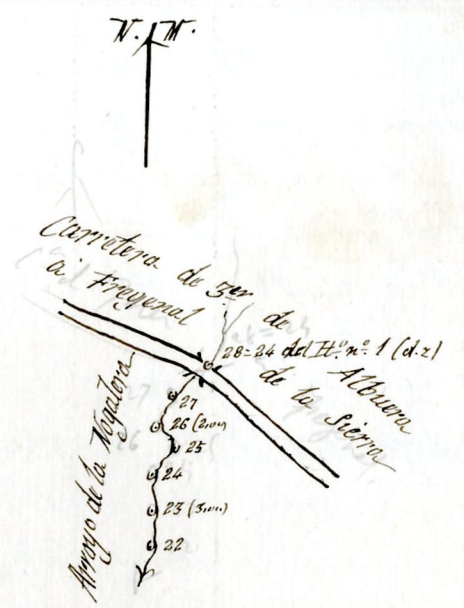 N. M.
Carretera de 3er de Albuera
á Fregenal de la Sierra
28=24 del It.º nº. 1 (d.z)
27
26 (2m)
25
24
23 (3m)
22
Arroyo de la Nogalera